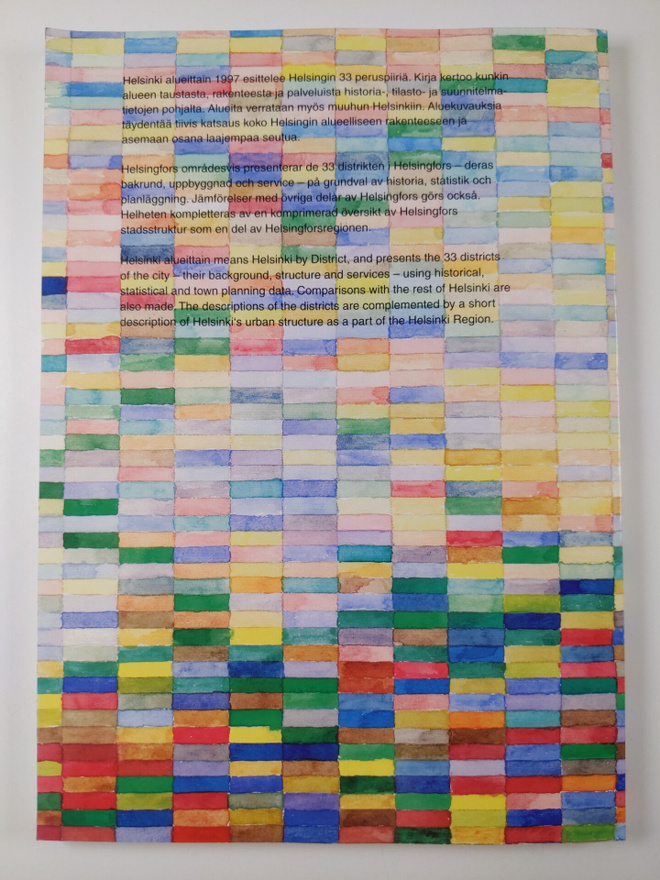 Helsinki alueittain 1997 esittelee Helsingin 33 peruspiiriä. Kirja kertoo kunkin
alueen taustasta, rakenteesta ja palveluista historia-, tilasto- ja suunnitelma-
tietojen pohjalta. Alueita verrataan myös muuhun Helsinkiin. Aluekuvauksia
täydentää tiivis katsaus koko Helsingin alueelliseen rakenteeseen ja
asemaan osana laajempaa seutua.
Helsingfors områdesvis presenterar de 33 distrikten i Helsingfors – deras
bakrund, uppbyggnad och service – på grundval av historia, statistik och
planläggning. Jämförelser med övriga delar av Helsingfors görs också.
Helheten kompletteras av en komprimerad översikt av Helsingfors
stadsstruktur som en del av Helsingforsregionen.
Helsinki alueittain means Helsinki by District, and presents the 33 districts
of the city – their background, structure and services – using historical,
statistical and town planning data. Comparisons with the rest of Helsinki are
also made. The descriptions of the districts are complemented by a short
description of Helsinki's urban structure as a part of the Helsinki Region.